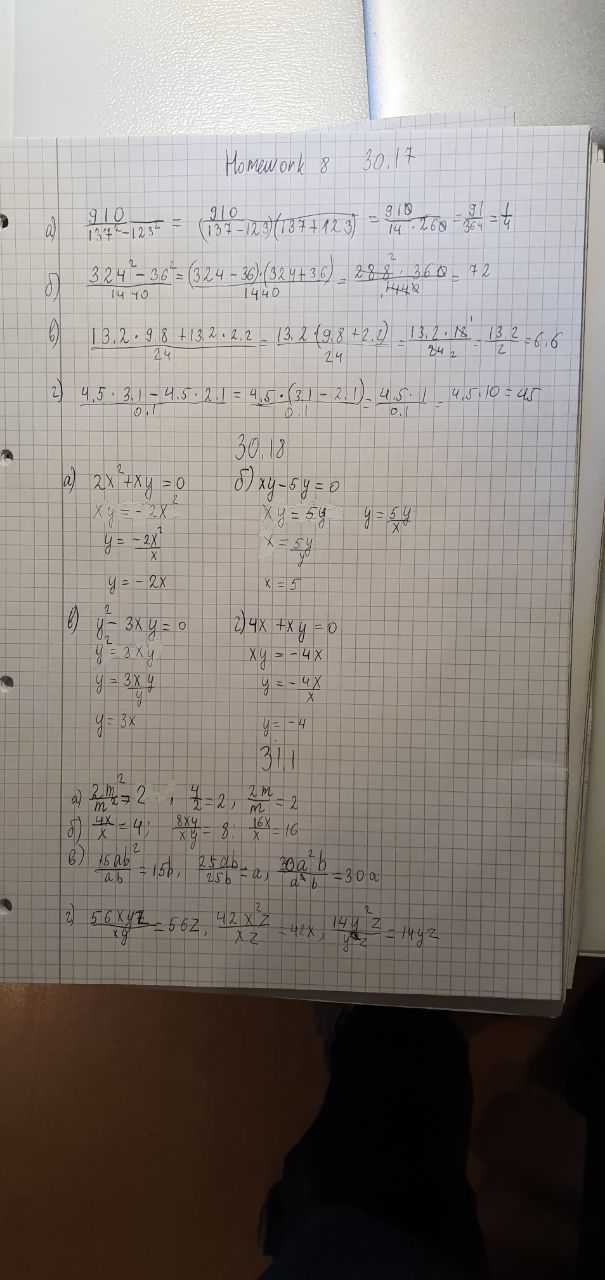 Homework 8 30.17
а) 910/(137²-123²) = 910/((137-123)(137+123)) = 910/(14·260) = 91/364 = 1/4
б) (324²-36²)/1440 = ((324-36)·(324+36))/1440 = (288²·360)/1440 = 72
в) (13.2·9.8+13.2·2.2)/24 = (13.2·(9.8+2.2))/24 = (13.2·12¹)/24 2 = 13.2/2 = 6.6
г) (4.5·3.1-4.5·2.1)/0.1 = (4.5·(3.1-2.1))/0.1 = (4.5·1)/0.1 = 4.5·10 = 45
30.18
а) 2x²+xy=0 б) xy-5y=0
xy=-2x² xy=5y y=5y/x
y=-2x²/x x=5y/y
y=-2x x=5
в) y²-3xy=0 г) 4x+xy=0
y²=3xy xy=-4x
y=3xy/y y=-4x/x
y=3x y=-4
31.1
а) 2m²/m²=2, 4/2=2, 2m/m=2
б) 4x/x=4; 8xy/xy=8; 16x/x=16
в) 15ab²/ab=15b, 25ab/25b=a, 30a²b/ab=30a
г) 56xyz/xy=56z, 42x²z/xz=42x; 14y²z/y=14yz